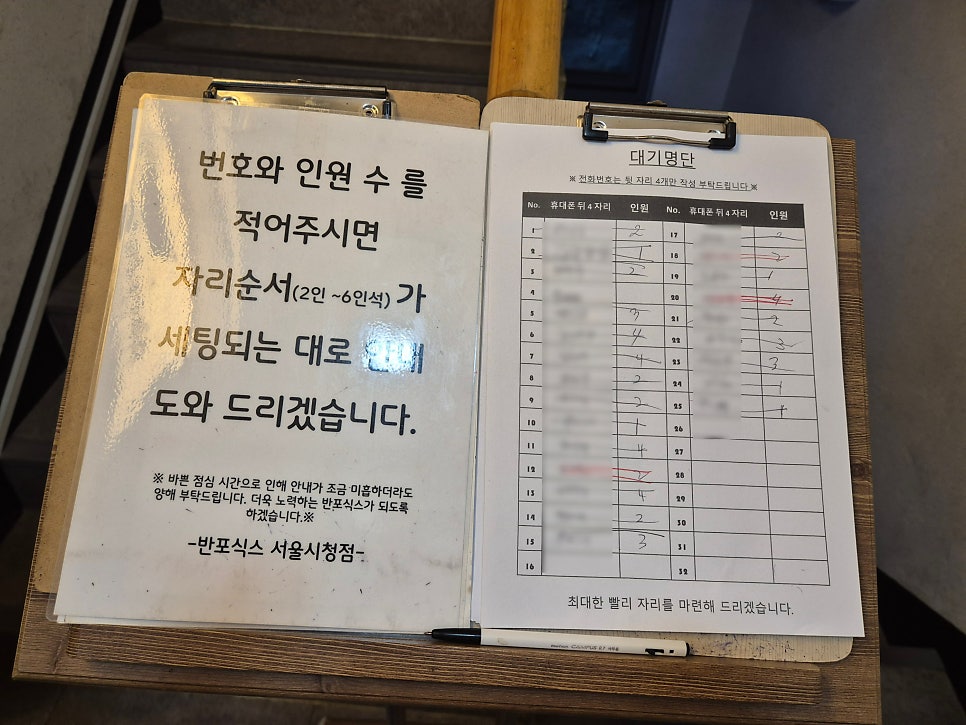 번호와 인원 수 를
적어주시면
자리순서(2인 ~6인석) 가
세팅되는 대로 안내
도와 드리겠습니다.
※ 바쁜 점심 시간으로 인해 안내가 조금 미흡하더라도
양해 부탁드립니다. 더욱 노력하는 반포식스가 되도록
하겠습니다.※
-반포식스 서울시청점-
대기명단
※ 전화번호는 뒷 자리 4개만 작성 부탁드립니다 ※
No. 휴대폰 뒤 4 자리 인원 No. 휴대폰 뒤 4 자리 인원
1 2 17 2
2 1 18 2
3 2 19 1
4 20 4
5 3 21 2
6 4 22 3
7 4 23 3
8 2 24 1
9 2 25
10 1 26
11 4 27
12 2 28
13 4 29
14 2 30
15 3 31
16 32
최대한 빨리 자리를 마련해 드리겠습니다.